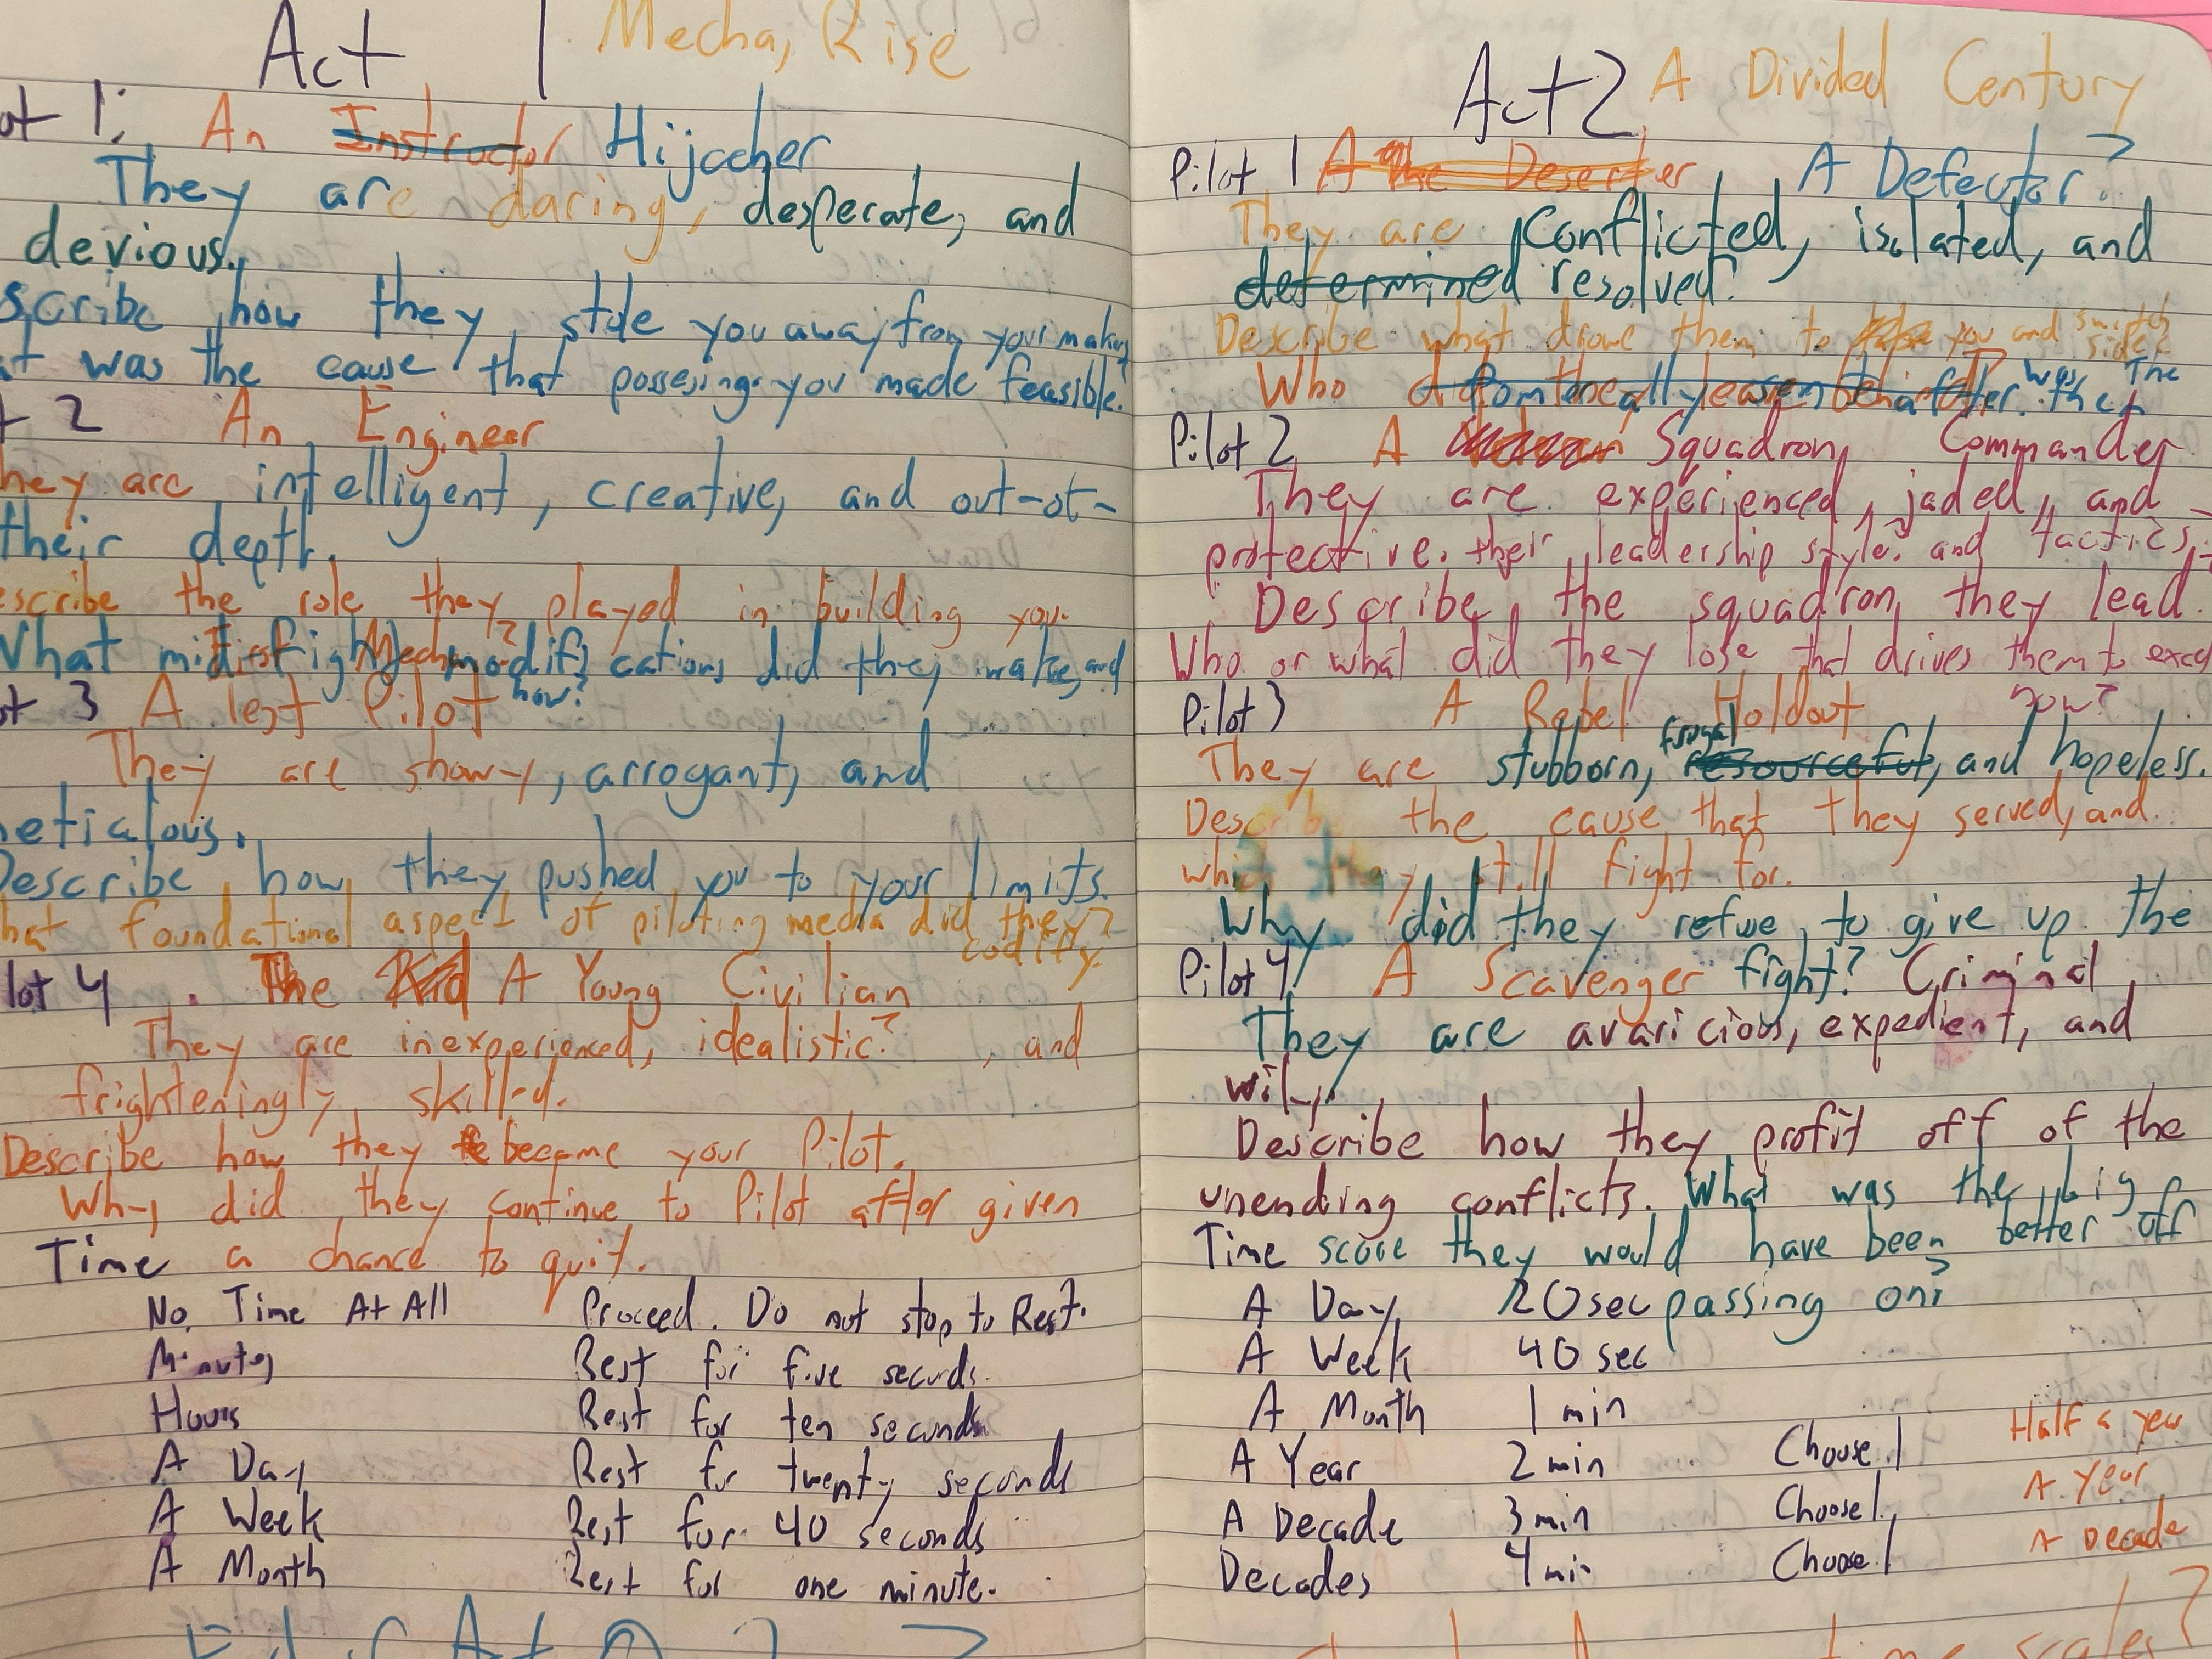 Act 1 Mecha, Rise
ot 1: An Instructor Hijacker
They are daring, desperate, and
devious.
scribe how they stole you away from your makers
at was the cause that possessing you made feasible?
t 2 An Engineer
hey are intelligent, creative, and out-of-
their depth.
escribe the role they played in building you.
What mid fight modifications did they make, and
how?
ot 3 A Test Pilot
They are showy, arrogant, and
meticulous.
Describe how they pushed you to your limits.
hat foundational aspect of piloting mecha did they?
codify.
lot 4 The Kid A Young Civilian
They are inexperienced, idealistic?, and
frighteningly skilled.
Describe how they became your Pilot.
Why did they continue to Pilot after given
a chance to quit.
Time
No Time At All Proceed. Do not stop to Rest.
Minutes Rest for five seconds.
Hours Rest for ten seconds
A Day Rest for twenty seconds
A Week Rest for 40 seconds
A Month Rest for one minute.
Act 2 A Divided Century
Pilot 1 A The Deserter, A Defector?
They are Conflicted, isolated, and
determined resolved?
Describe what drove them to you and switch
sides
Who was the
Pilot 2 A Squadron Commander
They are experienced, jaded, and
protective. their leadership style. and tactics.
Describe the squadron they lead.
Who or what did they lose that drives them to excel
now?
Pilot 3 A Rebel Holdout
They are stubborn, frugal resourceful, and hopeless.
Describe the cause that they served, and
which they still fight for.
Why did they refuse to give up the
fight?
Pilot 4 A Scavenger Criminal
They are avaricious, expedient, and
wily.
Describe how they profit off of the
unending conflicts. What was the big
score they would have been better off
passing on?
Time
A Day 20 sec
A Week 40 sec
A Month 1 min
A Year 2 min Choose! Half a year
A Decade 3 min Choose! A Year
Decades 4 min Choose! A Decade
time scales?